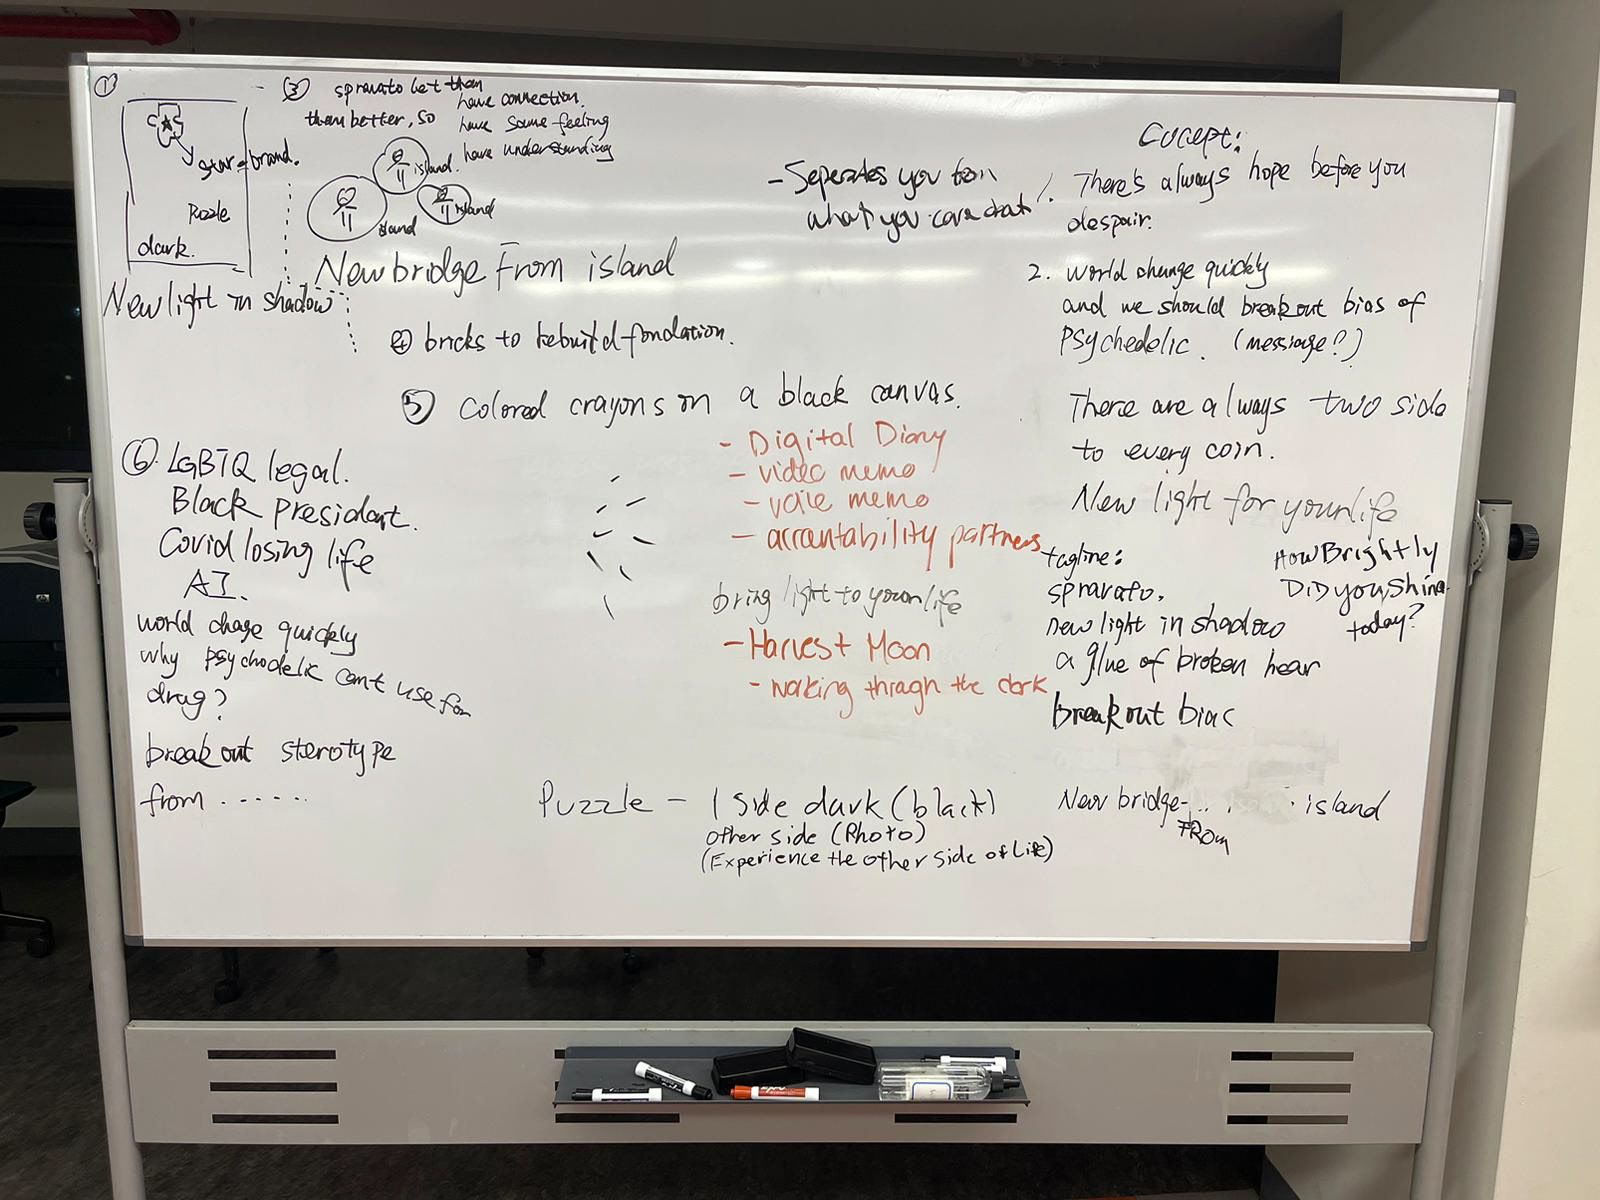 ①
star = brand.
Puzzle
dark.
New light in shadow
③ spravato let them
them better, so
have connection.
have same feeling
have understanding
island.
island
island
New bridge From island
④ bricks to rebuild fondation.
⑤ Colored crayons on a black canvas.
⑥ LGBTQ legal.
Black president.
Covid losing life
AI.
world chage quickly
why psychodelic can't use for
drug?
breakout sterotype
from ......
- Seperates you from
what you care
- Digital Diary
- video memo
- voice memo
- accountability partners
bring light to your life
- Harvest Moon
- working through the dark
Puzzle - 1 side dark (black)
other side (Photo)
(Experience the other side of Life)
Cocept:
1. There's always hope before you
despair.
2. world change quickly
and we should breakout bias of
PSychedelic. (message?)
There are always two side
to every coin.
New light for your life
tagline:
spravato.
new light in shadow
a glue of broken hear
breakout bias
How Brightly
DiD you Shine
today?
New bridge-... . island
FROM